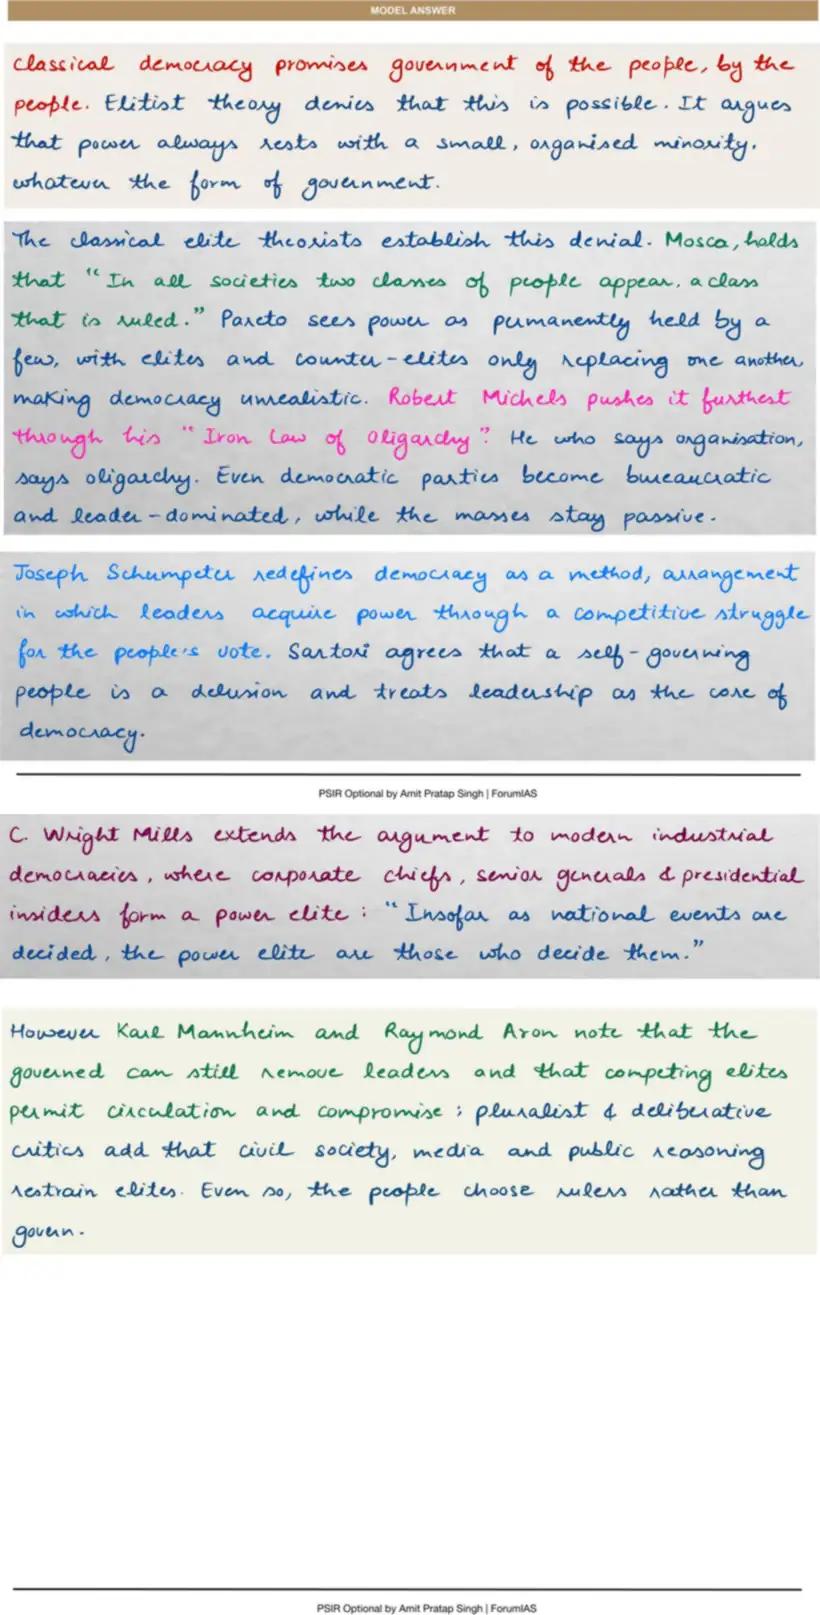 MODEL ANSWER
Classical democracy promises government of the people, by the
people. Elitist theory denies that this is possible. It argues
that power always rests with a small, organised minority.
whatever the form of government.
The classical elite theorists establish this denial. Mosca, holds
that "In all societies two classes of people appear. a class
that is ruled." Pareto sees power as permanently held by a
few, with elites and counter-elites only replacing one another,
making democracy unrealistic. Robert Michels pushes it furthest
through his "Iron Law of Oligarchy". He who says organisation,
says oligarchy. Even democratic parties become bureaucratic
and leader-dominated, while the masses stay passive.
Joseph Schumpeter redefines democracy as a method, arrangement
in which leaders acquire power through a competitive struggle
for the people's vote. Sartori agrees that a self-governing
people is a delusion and treats leadership as the core of
democracy.
PSIR Optional by Amit Pratap Singh | ForumIAS
C. Wright Mills extends the argument to modern industrial
democracies, where corporate chiefs, senior generals & presidential
insiders form a power elite: "Insofar as national events are
decided, the power elite are those who decide them."
However Karl Mannheim and Raymond Aron note that the
governed can still remove leaders and that competing elites
permit circulation and compromise; pluralist & deliberative
critics add that civil society, media and public reasoning
restrain elites. Even so, the people choose rulers rather than
govern.
PSIR Optional by Amit Pratap Singh | ForumIAS